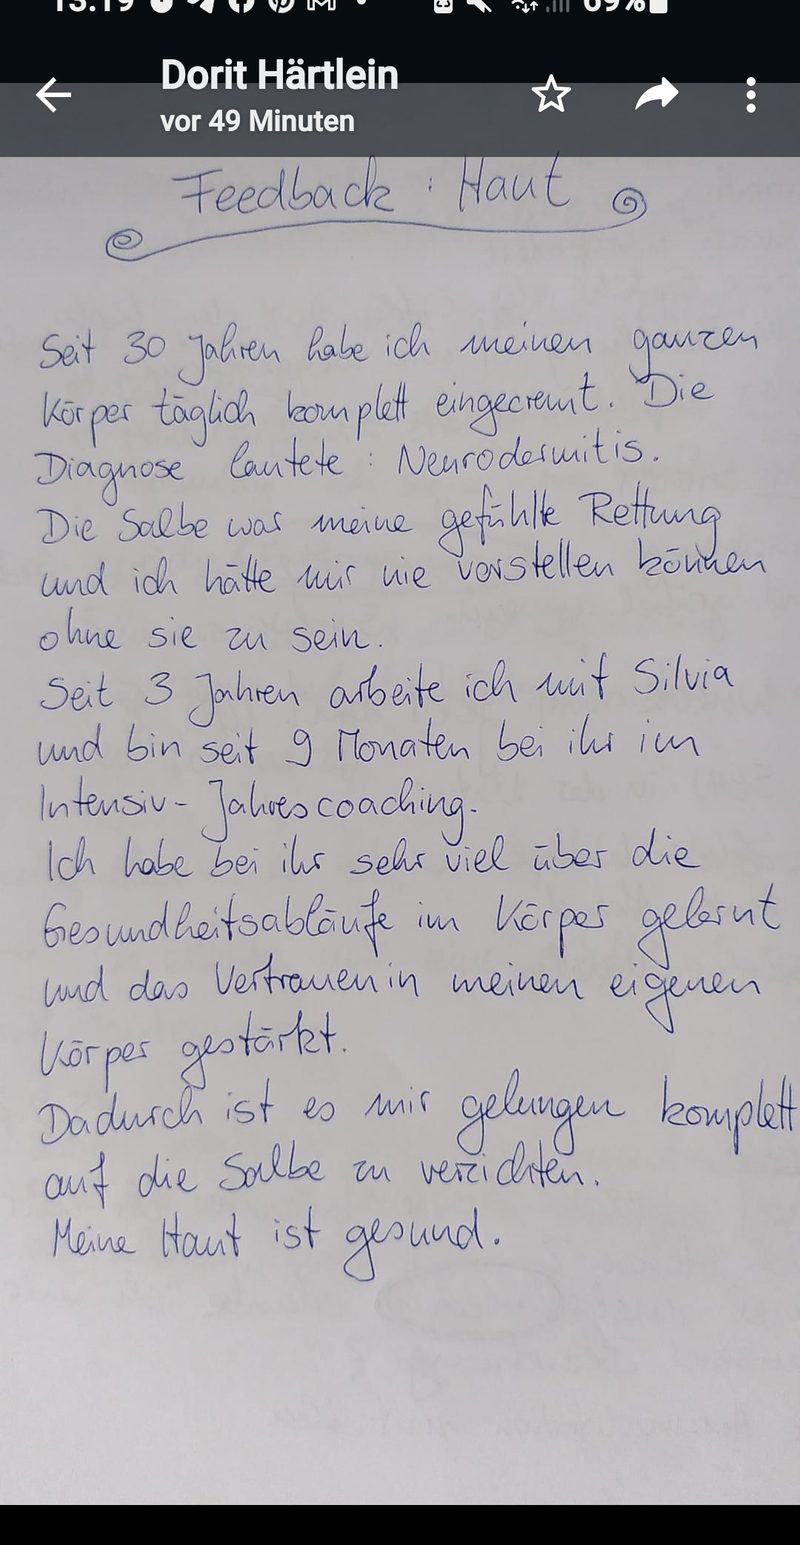 13:19
69%
Dorit Härtlein
vor 49 Minuten
Feedback : Haut
Seit 30 Jahren habe ich meinen ganzen
Körper täglich komplett eingecremt. Die
Diagnose lautete : Neurodermitis.
Die Salbe war meine gefühlte Rettung
und ich hätte mir nie vorstellen können
ohne sie zu sein.
Seit 3 Jahren arbeite ich mit Silvia
und bin seit 9 Monaten bei ihr im
Intensiv-Jahrescoaching.
Ich habe bei ihr sehr viel über die
Gesundheitsabläufe im Körper gelernt
und das Vertrauen in meinen eigenen
Körper gestärkt.
Dadurch ist es mir gelungen komplett
auf die Salbe zu verzichten.
Meine Haut ist gesund.